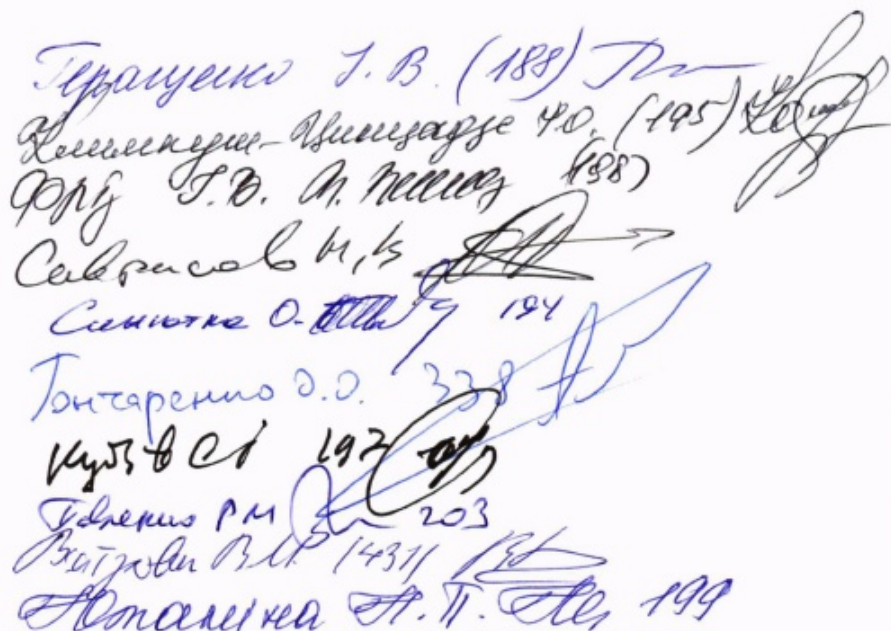 Геращенко І. В. (188)
Климпуш-Цинцадзе І. О. (195)
Фріз І. В. (198)
Саврасов М. В.
Синютка О. 194
Гончаренко О. О. 338
Кубів С І 197
Павленко Р М 203
В'ятрович В. М. (431)
Южаніна Н. П. 199